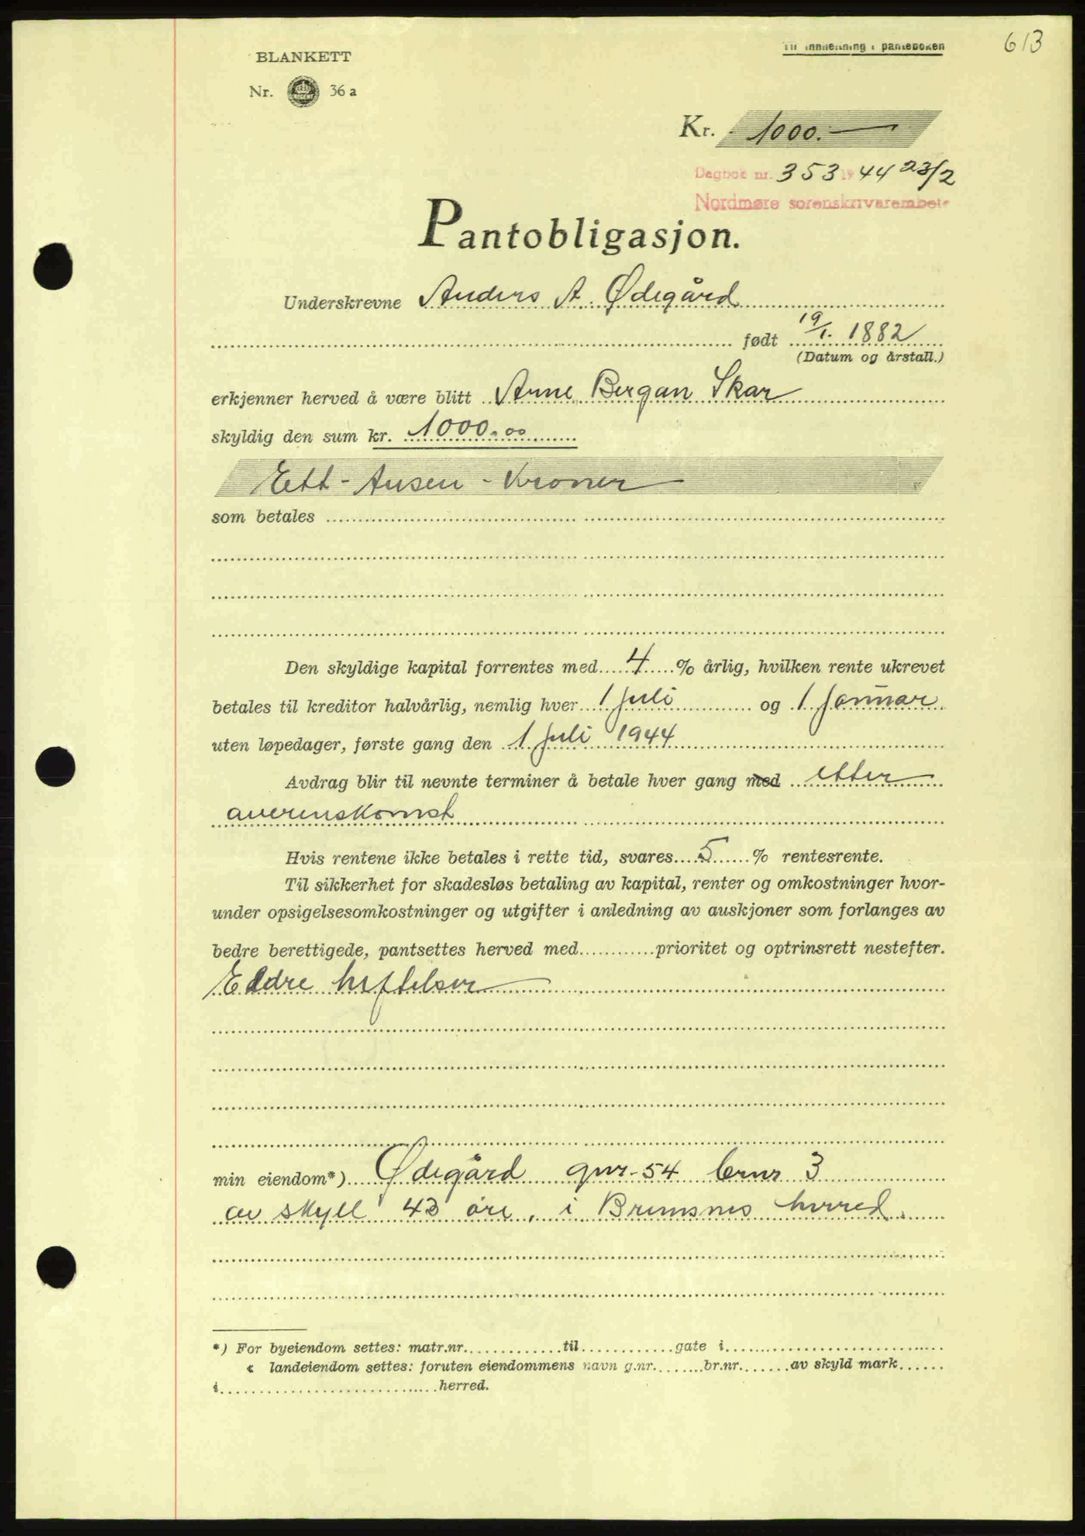 613
Til innheftning i panteboken
BLANKETT
Nr. 36 a
Kr. 1000.—
Dagbok nr. 353 1944 23/2
Nordmøre sorenskriverembete
Pantobligasjon.
Underskrevne Anders A. Ødegård
født 19/1. 1882
(Datum og årstall.)
erkjenner herved å være blitt Arne Bergan Skar
skyldig den sum kr. 1000.00
Ett - Tusen - Kroner
som betales
Den skyldige kapital forrentes med 4 % årlig, hvilken rente ukrevet
betales til kreditor halvårlig, nemlig hver 1 juli og 1 januar
uten løpedager, første gang den 1 juli 1944
Avdrag blir til nevnte terminer å betale hver gang med etter
averenskomst
Hvis rentene ikke betales i rette tid, svares 5 % rentesrente.
Til sikkerhet for skadesløs betaling av kapital, renter og omkostninger hvor-
under opsigelsesomkostninger og utgifter i anledning av auskjoner som forlanges av
bedre berettigede, pantsettes herved med prioritet og optrinsrett nestefter.
Eldre heftelser
min eiendom*) Ødegård gnr. 54 brnr 3
av skyll 43 øre, i Bremsnes herred.
*) For byeiendom settes: matr.nr. til gate i
« landeiendom settes: foruten eiendommens navn g.nr. br.nr. av skyld mark
i herred.